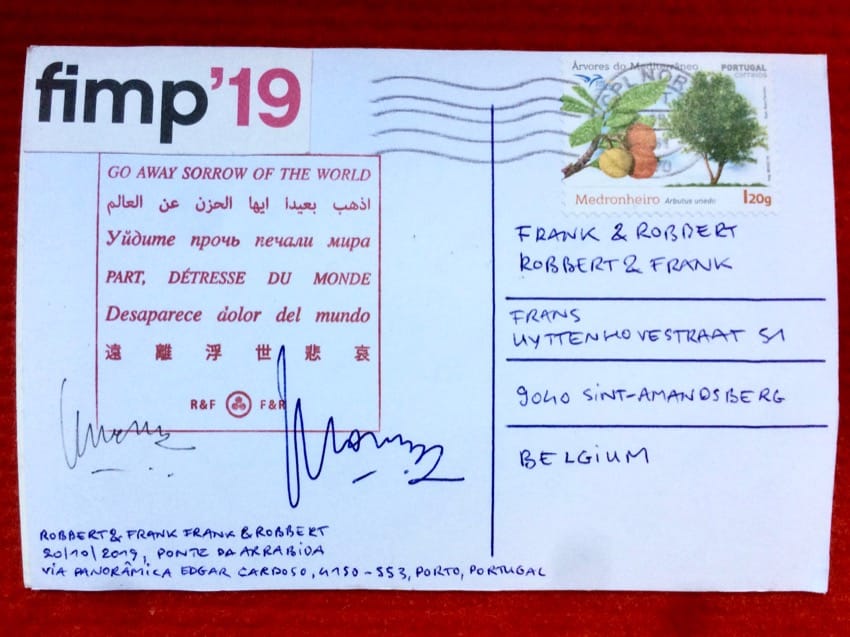 fimp'19
GO AWAY SORROW OF THE WORLD
اذهب بعيدا ايها الحزن عن العالم
Уйдите прочь печали мира
PART, DÉTRESSE DU MONDE
Desaparece dolor del mundo
遠離浮世悲哀
R&F F&R
ROBBERT & FRANK FRANK & ROBBERT
20/10/2019, PONTE DA ARRABIDA
VIA PANORÂMICA EDGAR CARDOSO, 4150-553, PORTO, PORTUGAL
Árvores do Mediterrâneo
PORTUGAL
correios
Medronheiro Arbutus unedo
I20g
FRANK & ROBBERT
ROBBERT & FRANK
FRANS
UYTTENHOVESTRAAT 51
9040 SINT-AMANDSBERG
BELGIUM